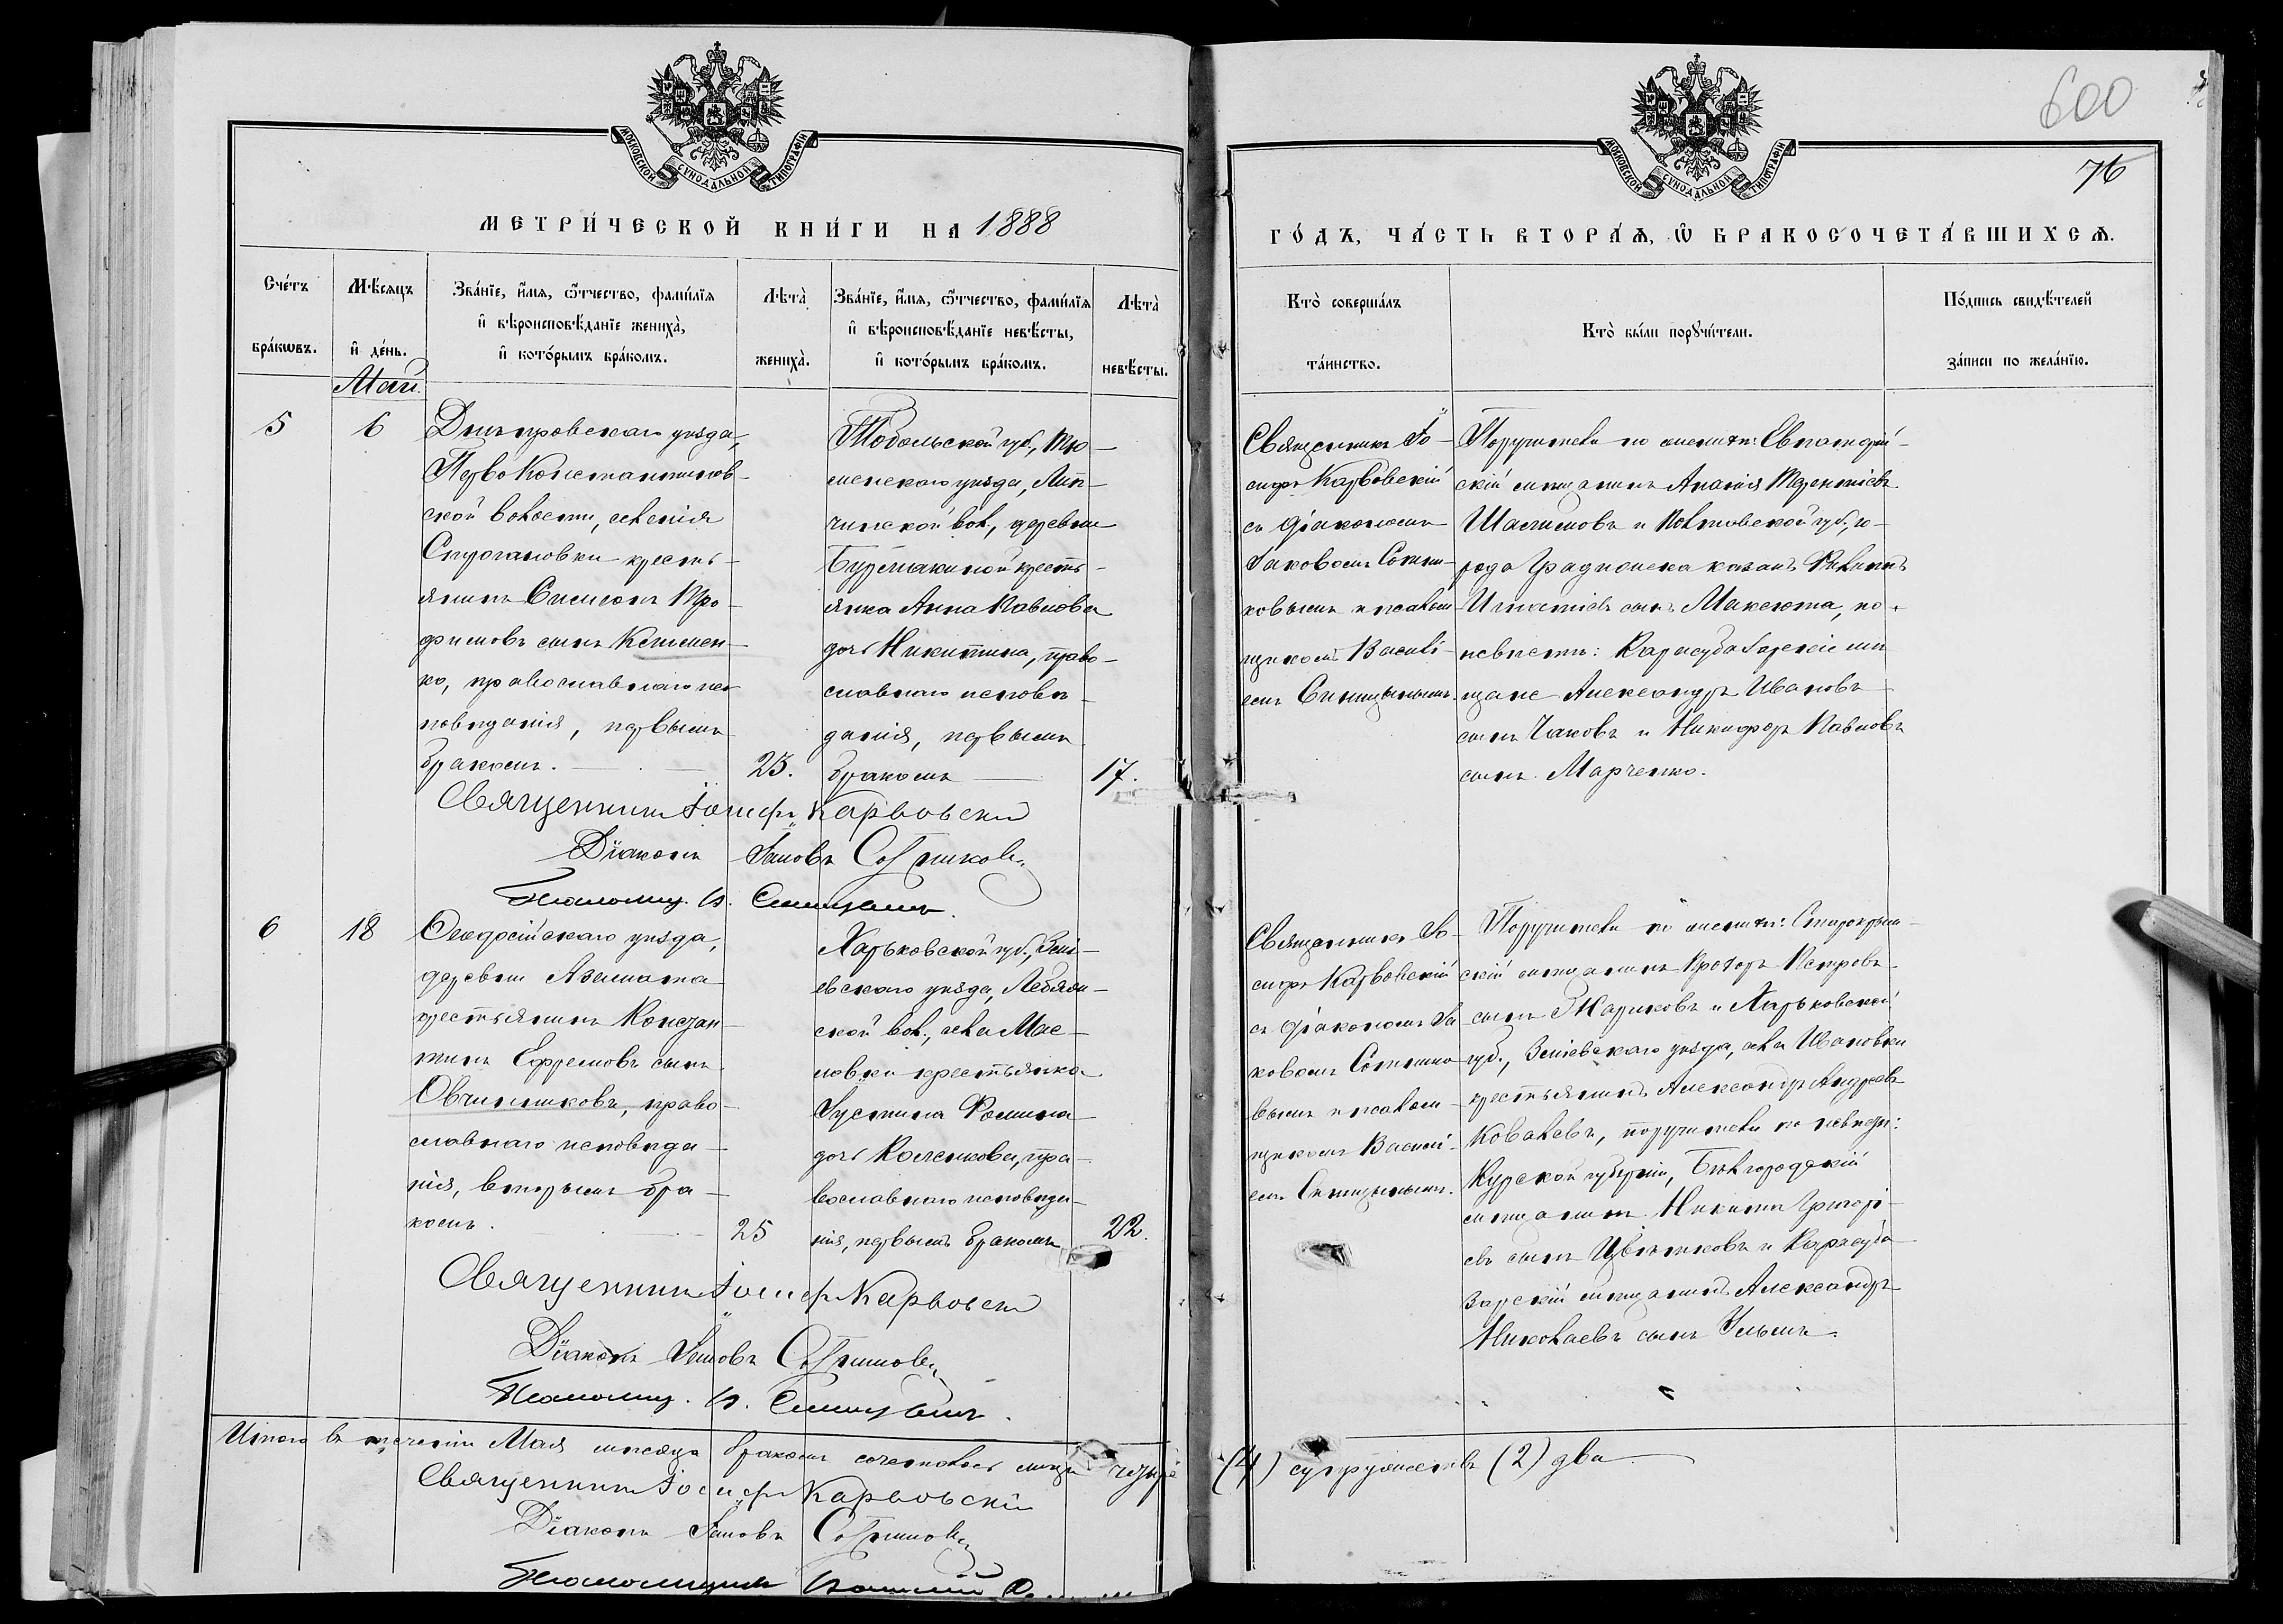 МОСКОВСКОЙ СѴНОДАЛЬНОЙ ТИПОГРАФІИ
МЕТРИ́ЧЕСКОЙ КНИ́ГИ НА 1888
Сче́тъ бра́кѡвъ.
Мѣ́сяцъ и҆ де́нь.
Зва́нїе, и҆́мѧ, ѻ҆́тчество, фами́лїѧ
и҆ вѣроисповѣ́данїе женихà,
и҆ кото́рымъ бра́комъ.
Лѣ́та женихà.
Зва́нїе, и҆́мѧ, ѻ҆́тчество, фами́лїѧ
и҆ вѣроисповѣ́данїе невѣ́сты,
и҆ кото́рымъ бра́комъ.
Лѣ́та невѣ́сты.
Май.
5
6
Днѣпровскаго уѣзда,
Перво Константинов-
ской волости, селенія
Строгановки кресть-
янинъ Симеонъ Тро-
фимовъ сынъ Климен-
ко, православнаго ис-
повѣданія, первымъ
бракомъ.
23.
Тобольской губ., Тю-
менскаго уѣзда, Лип-
чинской вол., деревни
Бурмакиной кресть-
янка Анна Павлова
дочь Никитина, право-
славнаго исповѣ-
данія, первымъ
бракомъ
17.
Священникъ Іосифъ Карвовскій
Діаконъ Іаковъ Сотниковъ
Псаломщ. В. Синицынъ.
6
18
Ѳеодосійскаго уѣзда,
деревни Азамата
крестьянинъ Констан-
тинъ Ефремовъ сынъ
Овчинниковъ, право-
славнаго исповѣда-
нія, вторымъ бра-
комъ.
25
Харьковской губ., Змі-
евскаго уѣзда, Лебяжи-
ской вол., села Мас-
ловки крестьянка
Іустина Фомина
дочь Коленкова, пра-
вославнаго исповѣда-
нія, первымъ бракомъ
22.
Священникъ Іосифъ Карвовскій
Діаконъ Іаковъ Сотниковъ
Псаломщ. В. Синицынъ.
Итого въ теченіи Мая мѣсяца бракомъ сочеталось лицъ четыре
Священникъ Іосифъ Карвовскій
Діаконъ Іаковъ Сотниковъ
Псаломщикъ Василій
600
76
МОСКОВСКОЙ СѴНОДАЛЬНОЙ ТИПОГРАФІИ
ГО́ДЪ, ЧА́СТЬ ВТОРА́Ѧ, Ѡ҆ БРАКОСОЧЕТА́ВШИХСѦ.
Ктò соверша́лъ та́инство.
Ктò бы́ли порꙋчи́тели.
По́дпись свидѣ́телей за́писи по жела́нїю.
Священникъ Іо-
сифъ Карвовскій
съ діакономъ
Іаковомъ Сотни-
ковымъ и псалом-
щикомъ Василі-
емъ Синицынымъ.
Поручители по женихѣ: Евпаторій-
скій мѣщанинъ Ананія Терентіевъ
Шастуновъ и Полтовской губ., го-
рода Градижска казакъ Филиппъ
Игнатіевъ сынъ Максюта, по
невѣстѣ: Карасубазарскіе мѣ-
щане Александръ Ивановъ
сынъ Чаковъ и Никифоръ Павловъ
сынъ Марченко.
Священникъ Іо-
сифъ Карвовскій
съ діакономъ Іа-
ковомъ Сотнико-
вымъ и псалом-
щикомъ Василі-
емъ Синицынымъ.
Поручители по женихѣ: Старокрым-
скій мѣщанинъ Прохоръ Петровъ
сынъ Жариковъ и Харьковской
губ., Зміевскаго уѣзда, села Ивановки
крестьянинъ Александръ Андреевъ
Ковалевъ, поручители по невѣстѣ:
Курской губерніи, Бѣлгородскій
мѣщанинъ Никита Григорі-
евъ сынъ Цвѣтковъ и Карасуба-
зарскій мѣщанинъ Александръ
Николаевъ сынъ Ильинъ.
(4) супружествъ (2) два